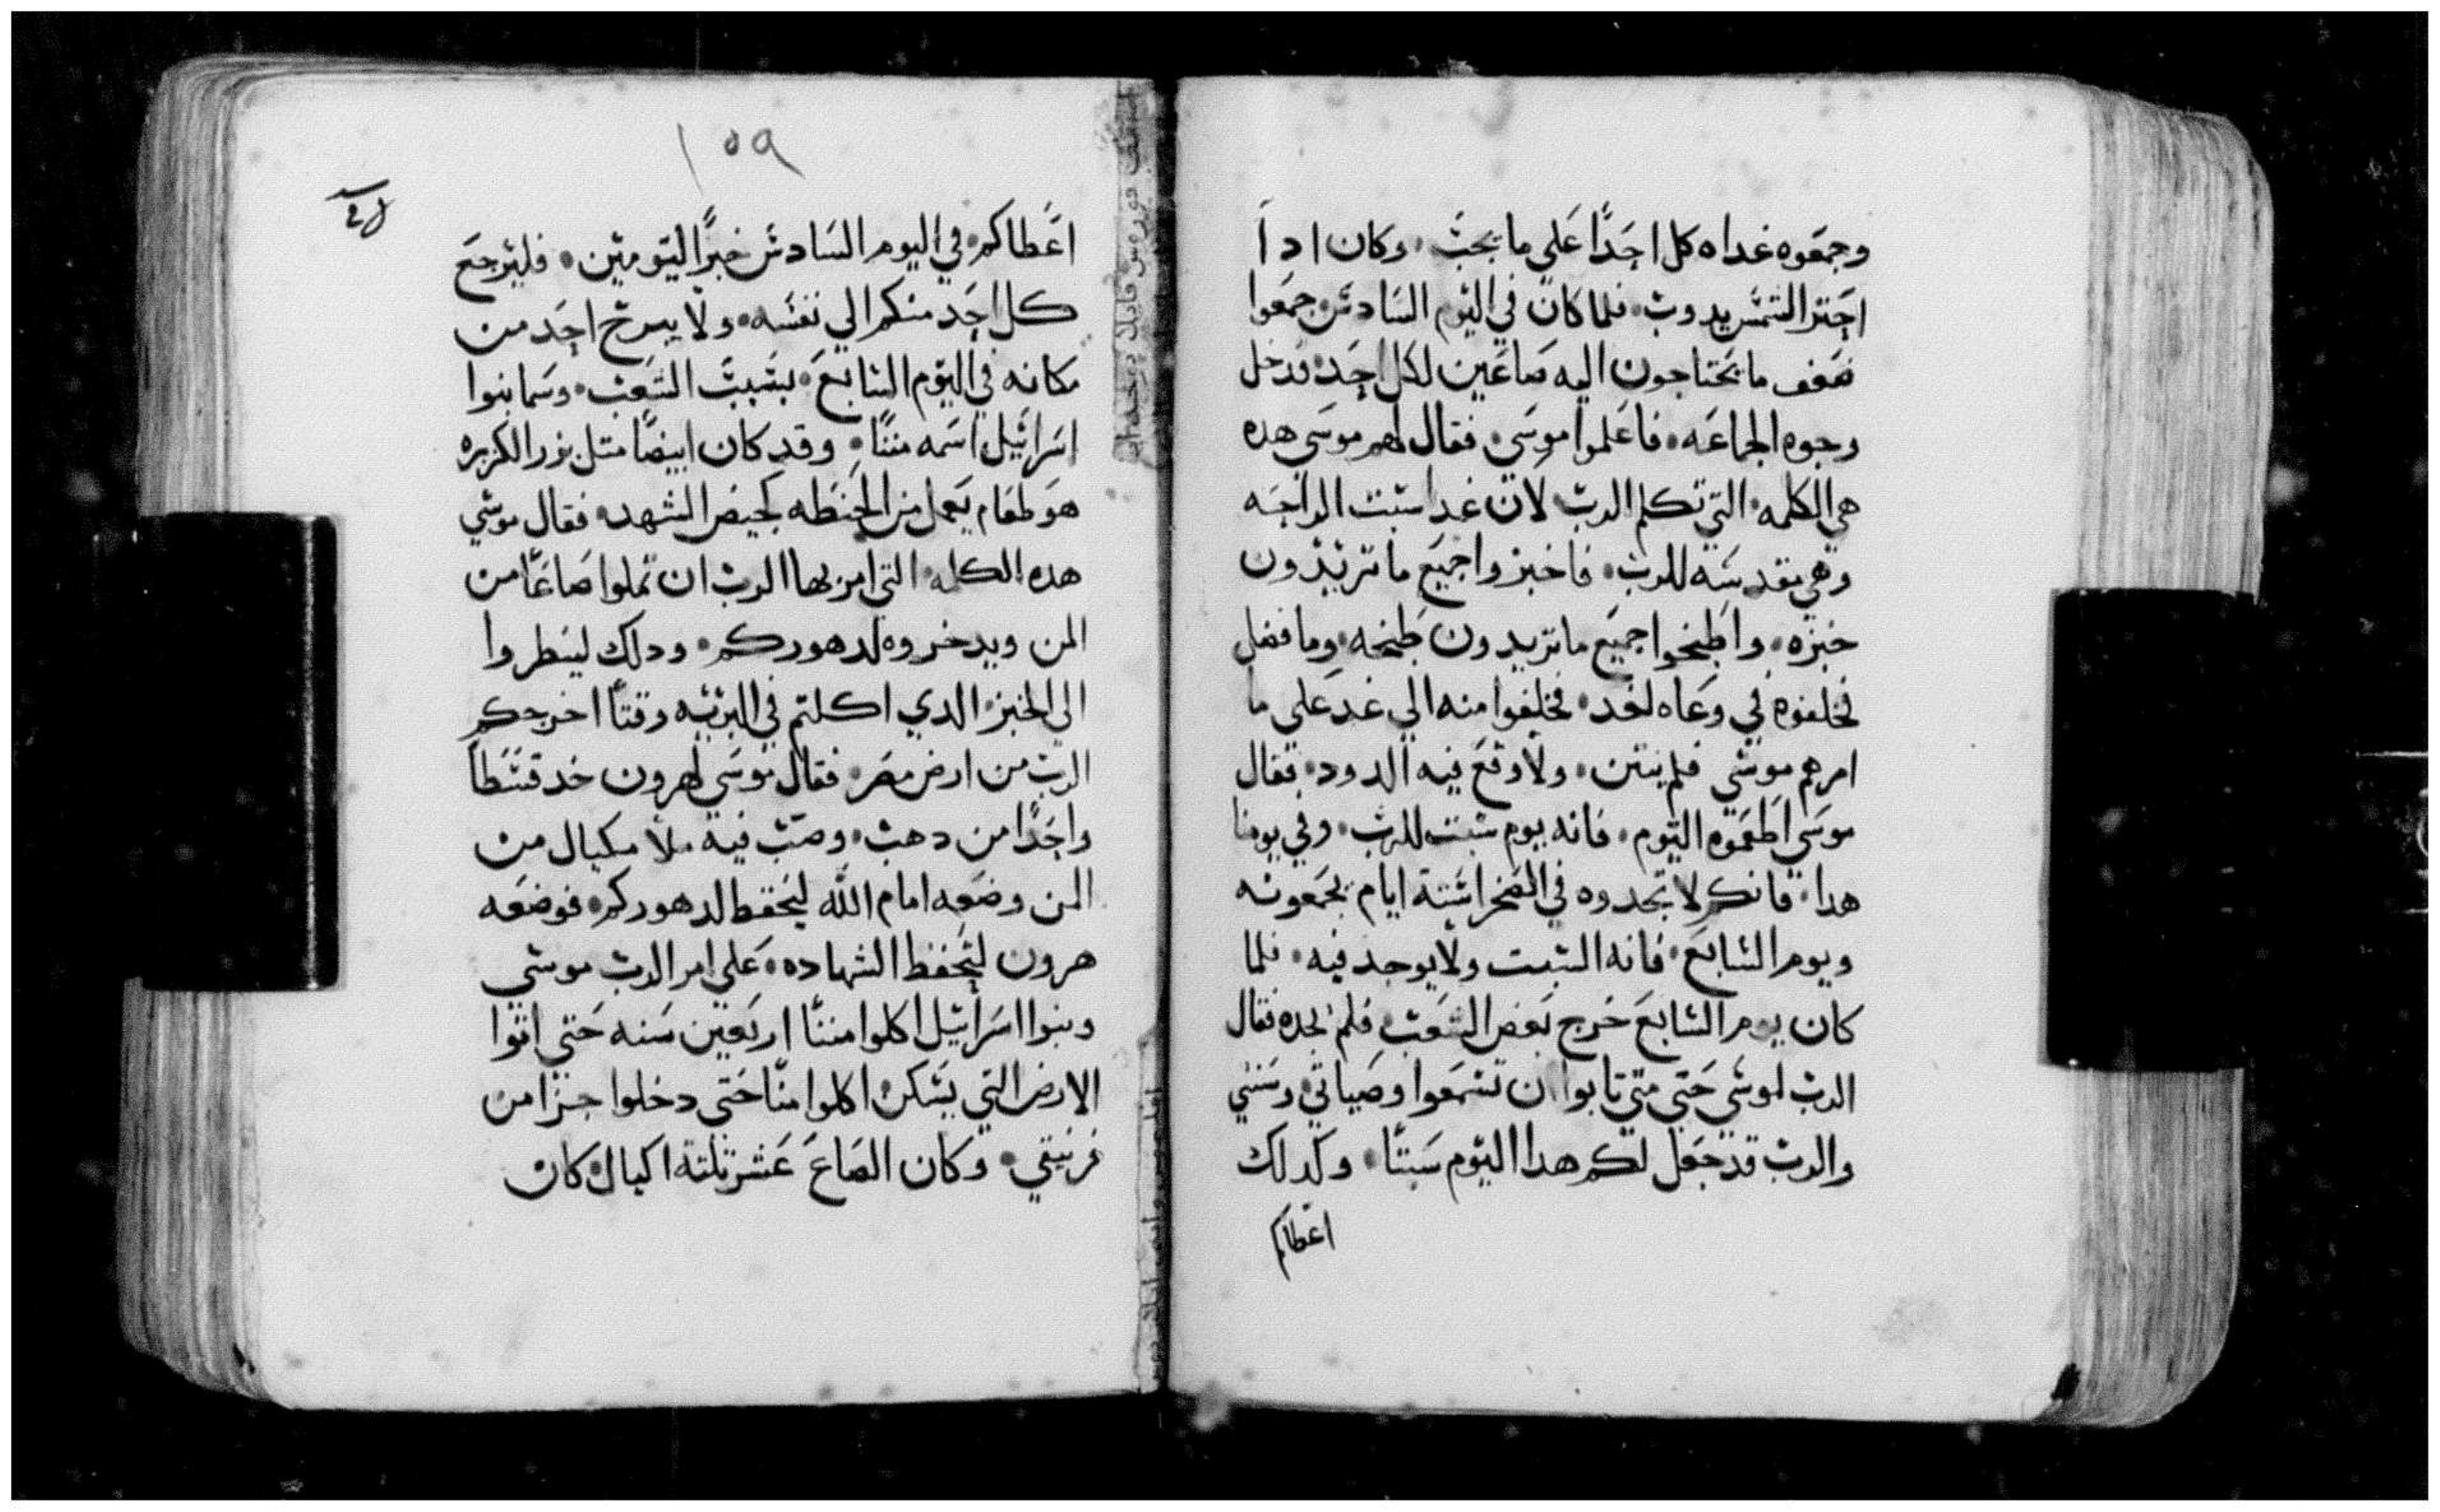 وجمعوه غداه كل احدًا على ما يجب وكان ادا
احتر الشمس يدوب فلما كان في اليوم السادس جمعوا
ضعف ما يحتاجون اليه صاعين لكل احد فدخل
وجوه الجماعه فاعلموا موسى فقال لهم موسى هده
هي الكلمه التي تكلم الرب لان غدا سبت الراحه
وهي مقدسه للرب فاخبزوا جميع ما تريدون
خبزه واطبخوا جميع ما تريدون طبخه وما فضل
فخلفوه في وعاه لغد فخلفوا منه الي غد على ما
امرهم موسي فلم ينتن ولا وقع فيه الدود فقال
موسى اطعموه اليوم فانه يوم سبت للرب وفي يومنا
هدا فانكم لا تجدوه في الصحرا ستة ايام تجمعونه
ويوم السابع فانه السبت ولا يوجد فيه فلما
كان يوم السابع خرج بعض الشعب فلم يجده فقال
الرب لموسى حتى متى تابوا ان تسمعوا وصياتي وسنني
والرب قد جعل لكم هدا اليوم سبتًا وكدلك
اعطاكم
١٥٩
اعطاكم في اليوم السادس خبزًا ليومين فليرجع
كل احد منكم الي نفسه ولا يبرح احد من
مكانه في اليوم السابع بسبب الشعب وسما بنوا
اسرائيل اسمه مننًا وقد كان ابيضًا متل بزر الكزبره
هو طعام يعمل من الحنطه كحيض الشهد فقال موسي
هده الكلمه التي امر بها الرب ان تملوا صاعًا من
المن ويدخروه لدهوركم ودلك لينظروا
الى الخبز الدي اكلتم في البريه وقتًا اخرجكم
الرب من ارض مصر فقال موسى لهرون خد قسطًا
واحدًا من دهب وصب فيه ملا مكيال من
المن وضعه امام الله ليحفظ لدهوركم فوضعه
هرون ليحفظ الشهاده على امر الرب موسي
وبنوا اسرائيل اكلوا مننًا اربعين سنه حتي اتوا
الارض التي يسكن اكلوا منًا حتى دخلوا جزا من
فرنيقي وكان الصاع عشر تلته اكيال كان